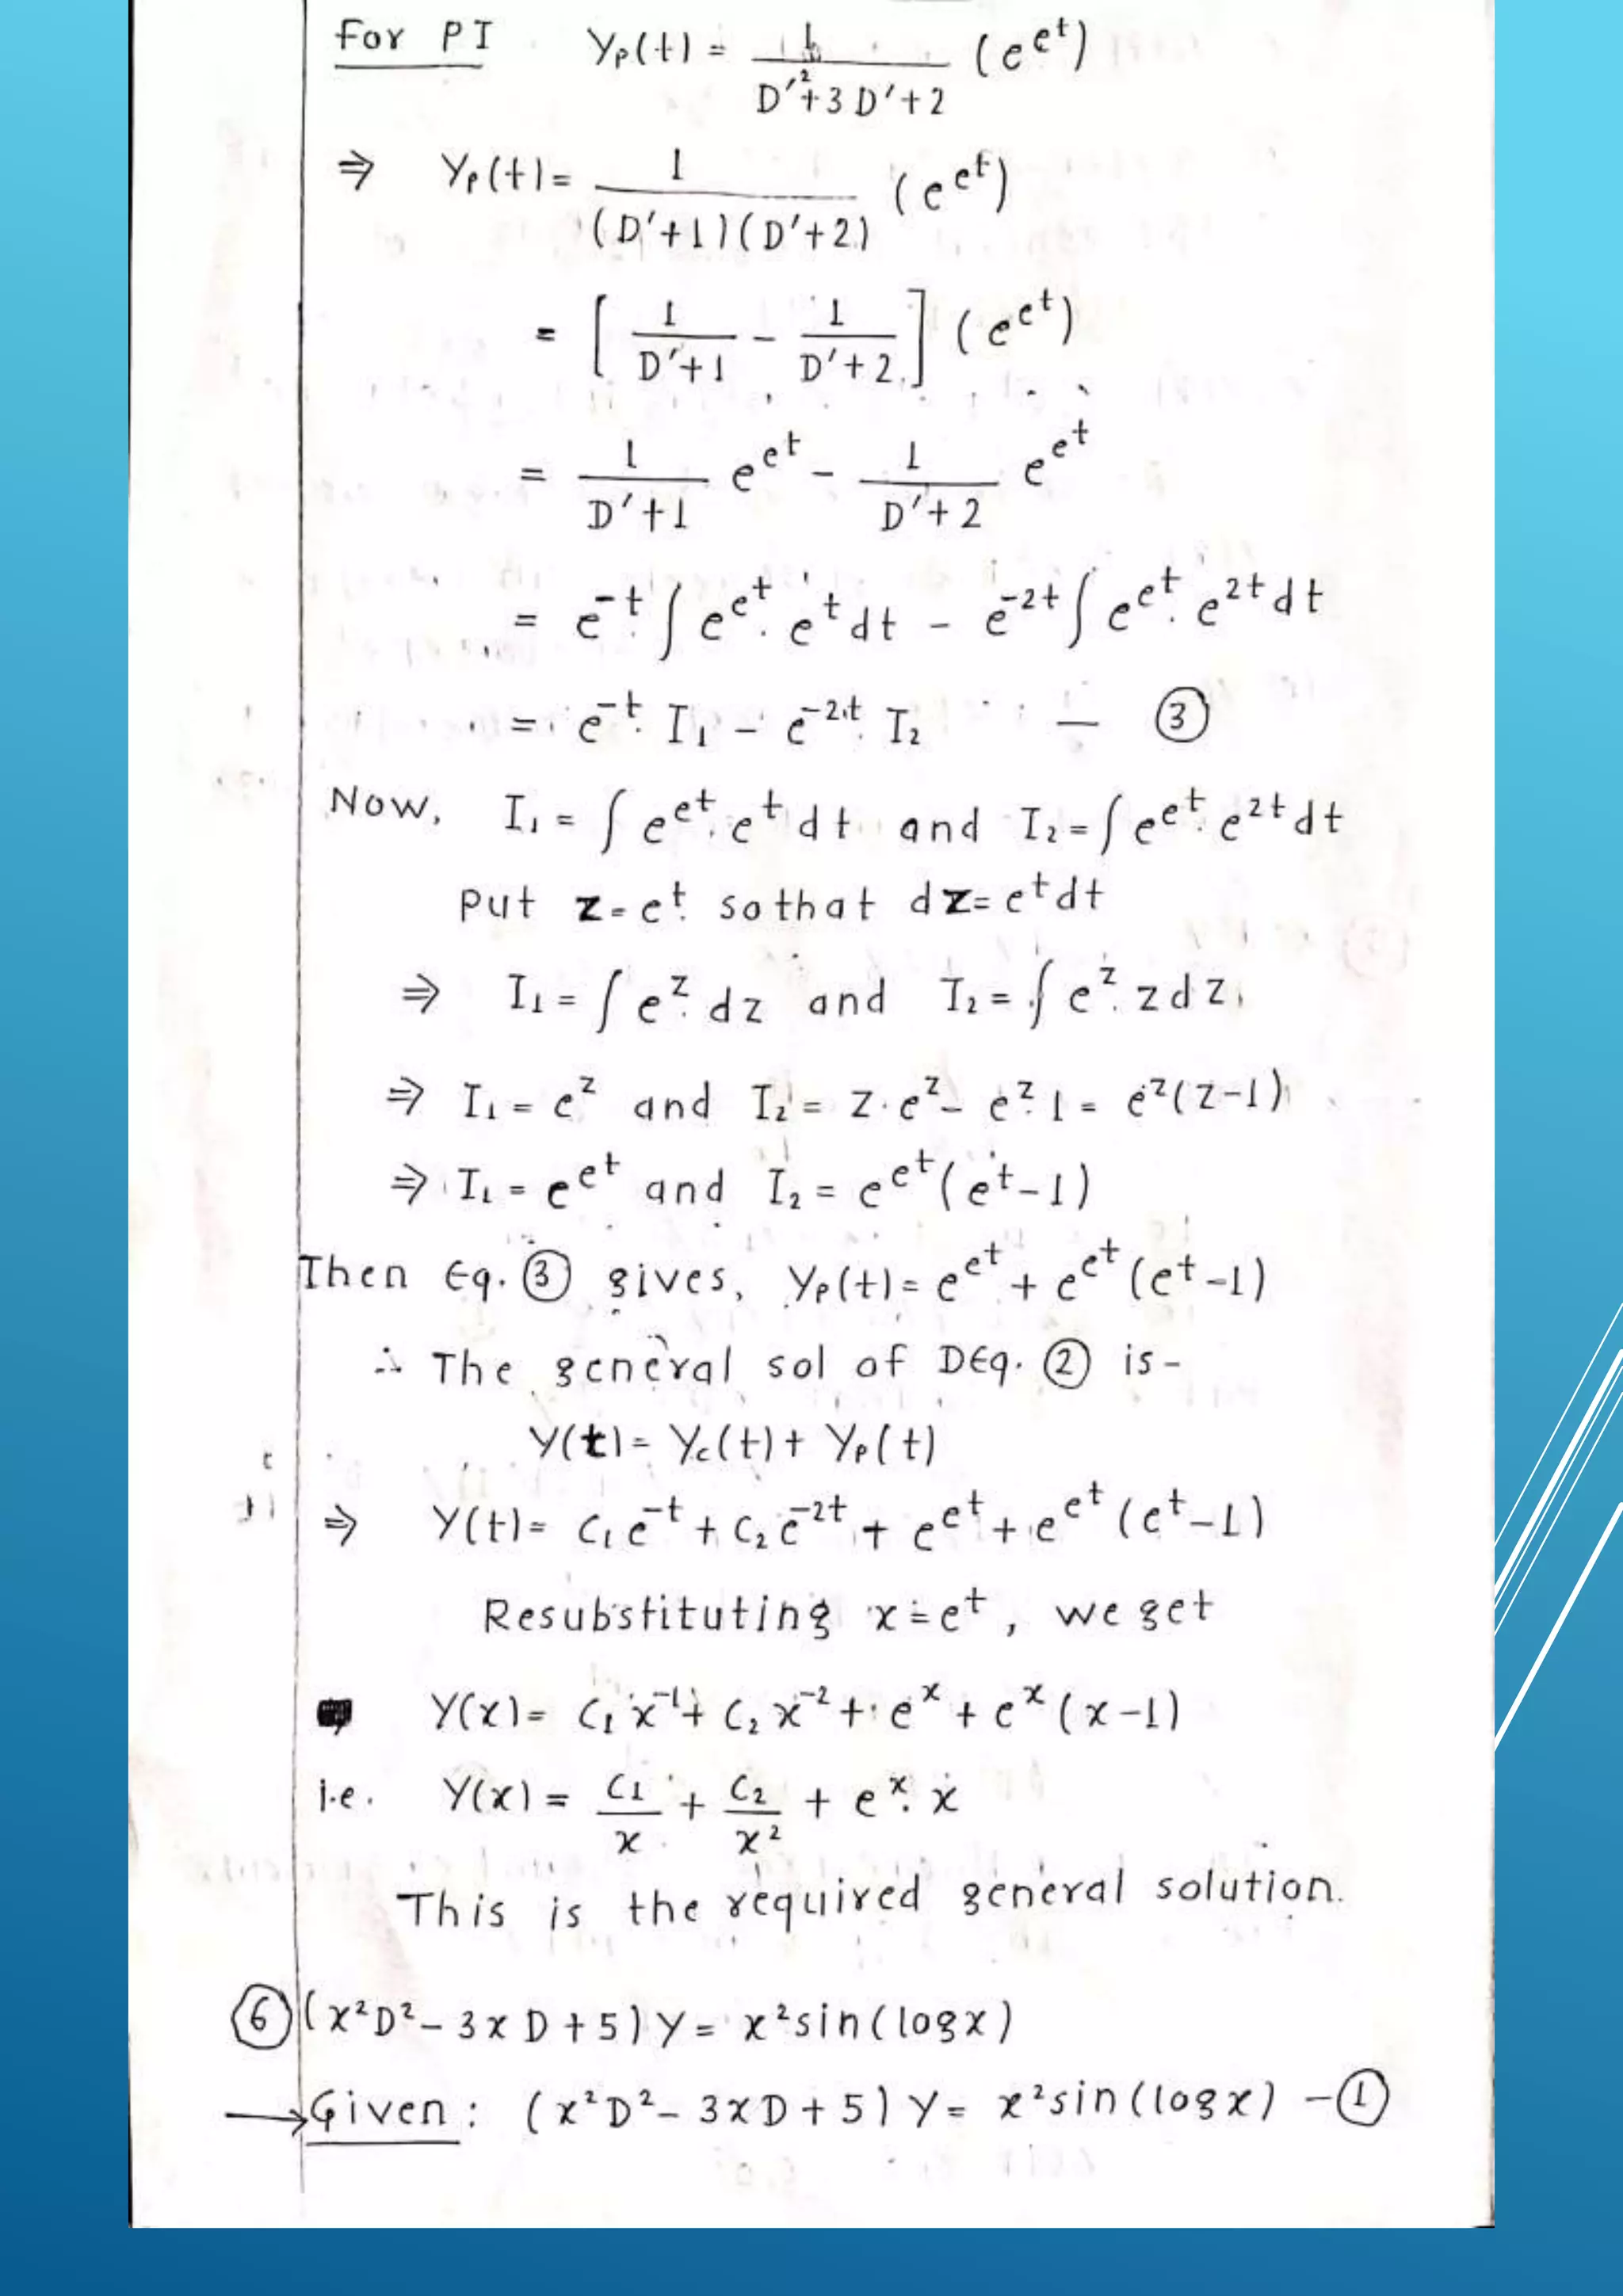 For PI Yp(t) = 1/(D'²+3D'+2) (e^e^t)
⇒ Yp(t) = 1/((D'+1)(D'+2)) (e^e^t)
= [1/(D'+1) - 1/(D'+2)] (e^e^t)
= 1/(D'+1) e^e^t - 1/(D'+2) e^e^t
= e^-t ∫ e^e^t · e^t dt - e^-2t ∫ e^e^t · e^2t dt
= e^-t · I₁ - e^-2t · I₂ — ③
Now, I₁ = ∫ e^e^t · e^t dt and I₂ = ∫ e^e^t · e^2t dt
Put z = e^t so that dz = e^t dt
⇒ I₁ = ∫ e^z · dz and I₂ = ∫ e^z · z dz
⇒ I₁ = e^z and I₂ = z · e^z - e^z · 1 = e^z (z-1)
⇒ I₁ = e^e^t and I₂ = e^e^t (e^t - 1)
Then Eq. ③ gives, Yp(t) = e^e^t + e^e^t (e^t - 1)
∴ The general sol of DEq. ② is -
Y(t) = Yc(t) + Yp(t)
⇒ Y(t) = C₁ e^-t + C₂ e^-2t + e^e^t + e^e^t (e^t - 1)
Resubstituting x = e^t, we get
Y(x) = C₁ x^-1 + C₂ x^-2 + e^x + e^x (x-1)
i.e. Y(x) = C₁/x + C₂/x² + e^x · x
This is the required general solution.
⑥ (x²D² - 3xD + 5) Y = x² sin(logx)
→ Given : (x²D² - 3xD + 5) Y = x² sin(logx) - ①